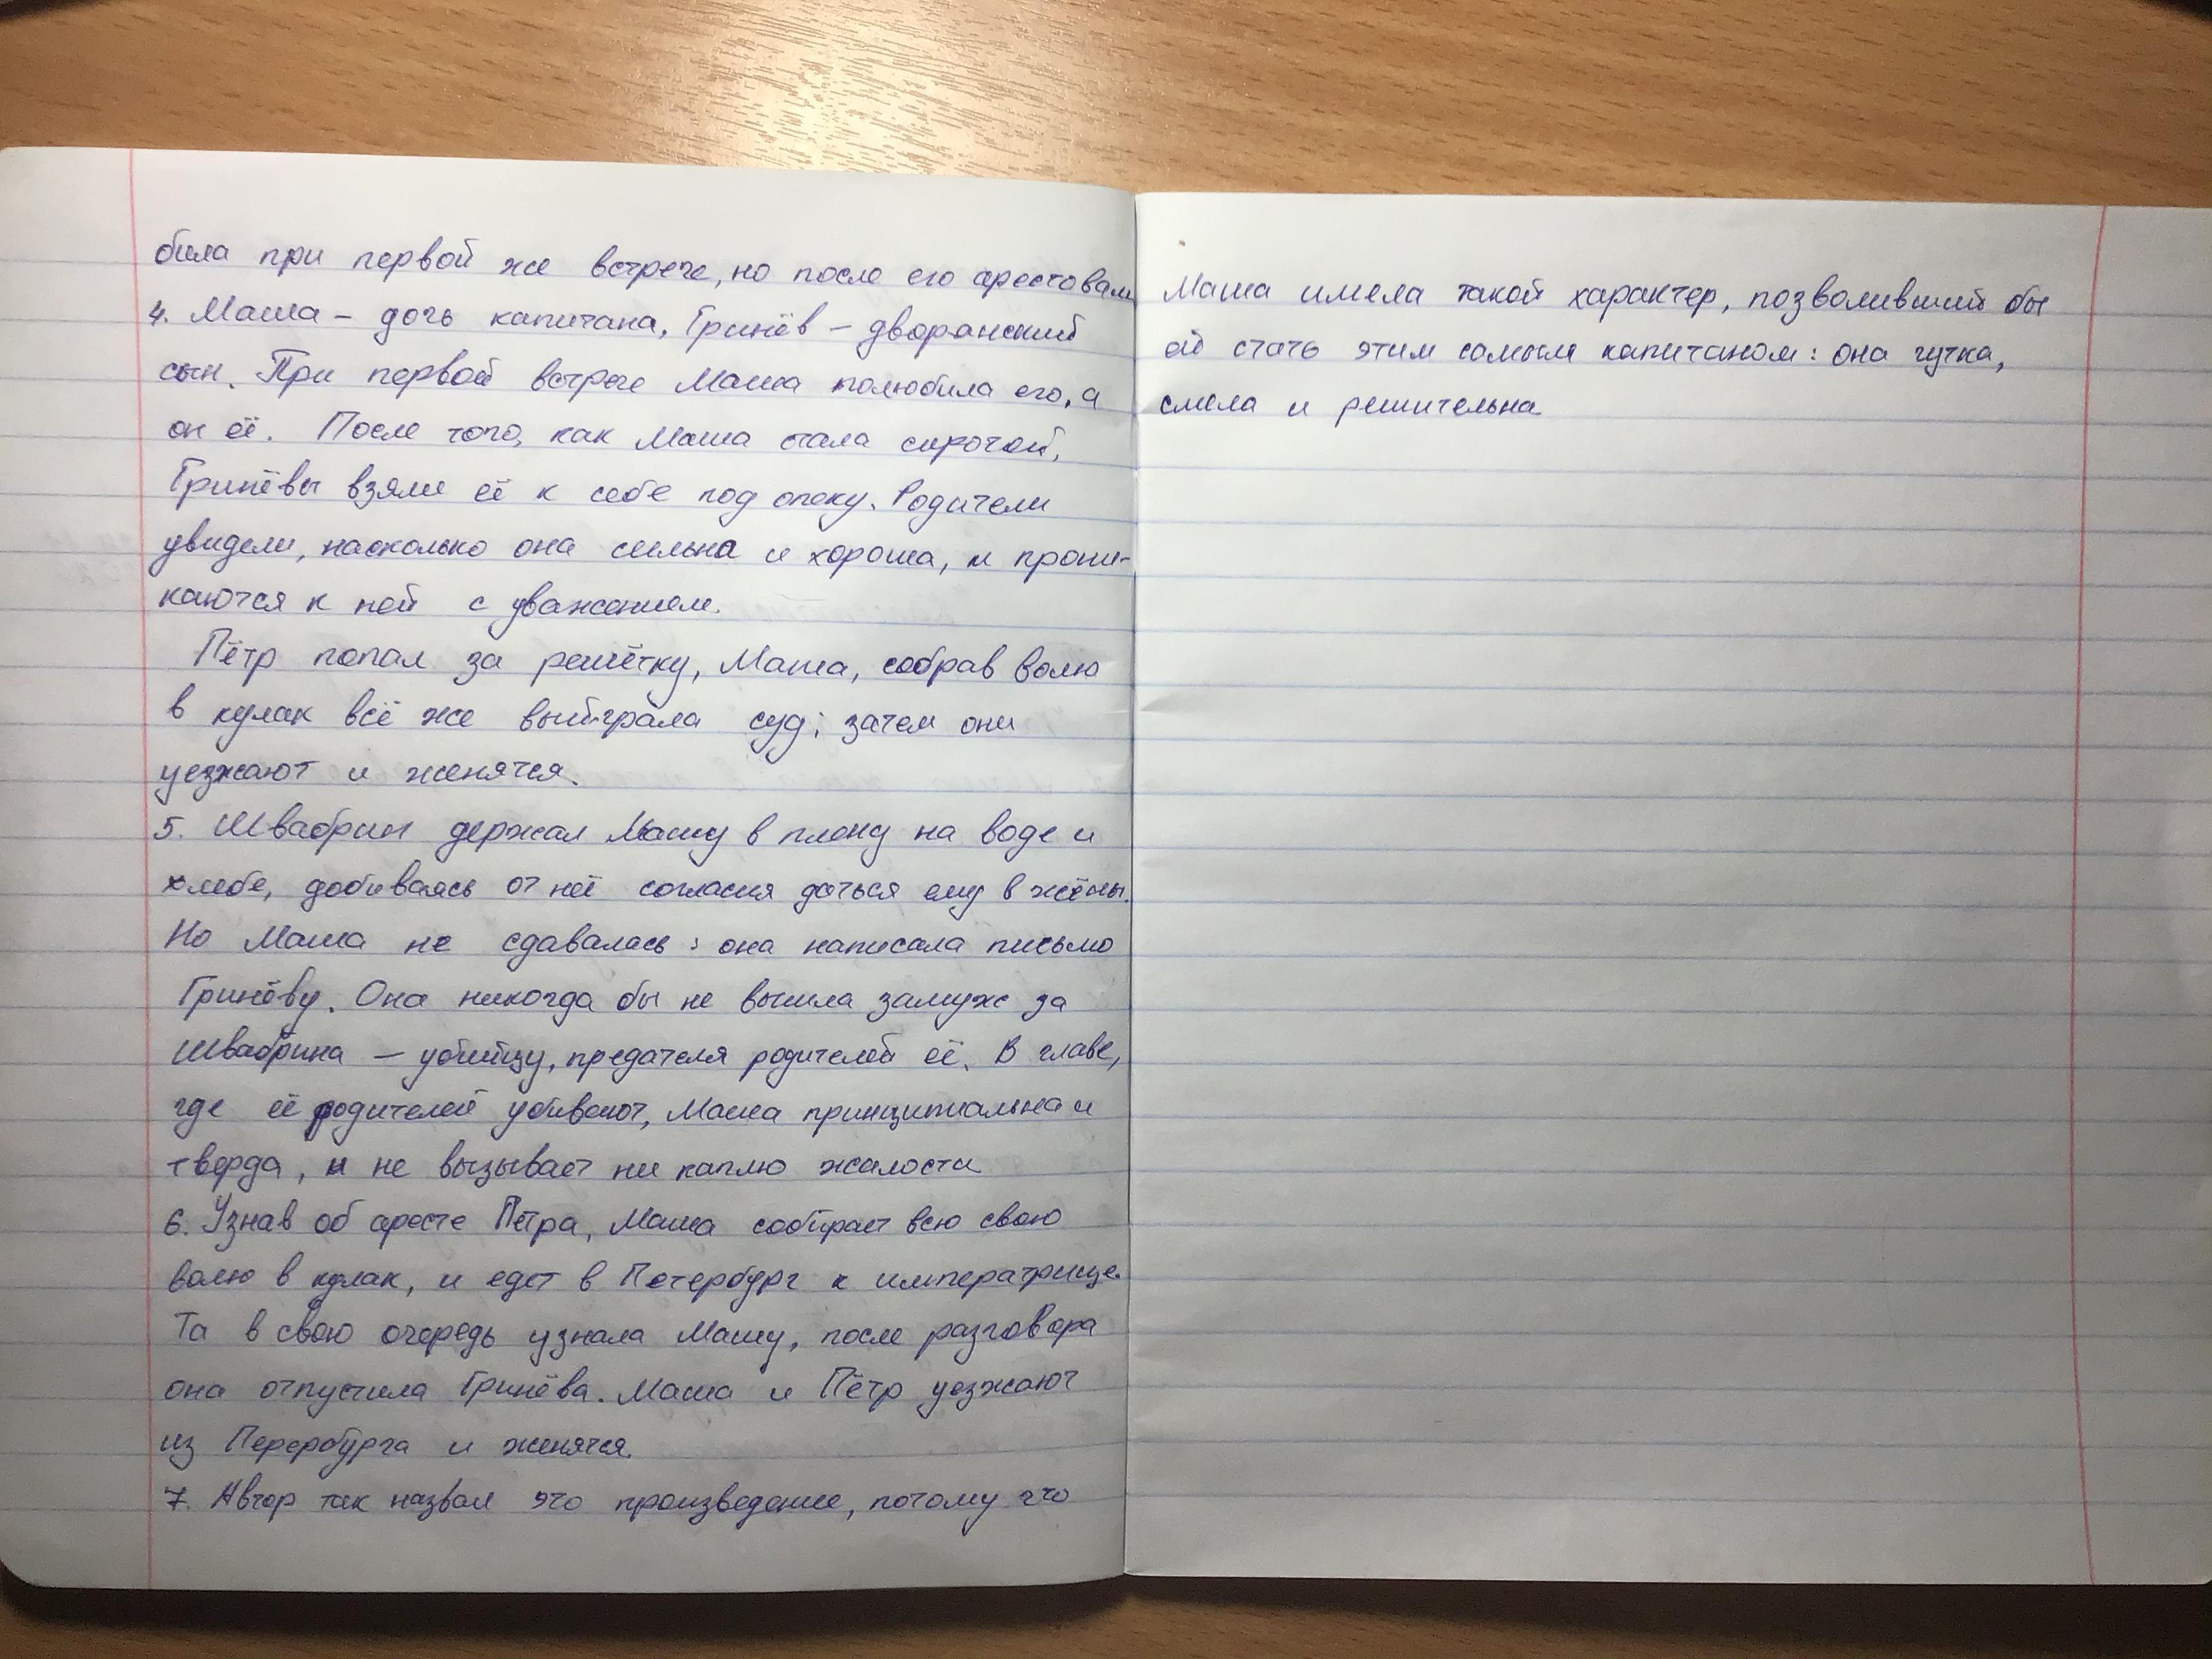 била при первой же встрече, но после его арестовали
4. Маша – дочь капитана, Гринёв – дворянский
сын. При первой встрече Маша полюбила его, а
он её. После того, как Маша стала сиротой,
Гринёвы взяли её к себе под опеку. Родители
увидели, насколько она сильна и хороша, и прони-
каются к ней с уважением.
Пётр попал за решётку, Маша, собрав волю
в кулак всё же выиграла суд; затем они
уезжают и женятся.
5. Швабрин держал Машу в плену на воде и
хлебе, добиваясь от неё согласия даться ему в жёны.
Но Маша не сдавалась: она написала письмо
Гринёву. Она никогда бы не вышла замуж за
Швабрина – убийцу, предателя родителей её. В главе,
где её родителей убивают, Маша принципиальна и
тверда, и не вызывает ни каплю жалости
6. Узнав об аресте Петра, Маша собирает всю свою
волю в кулак, и едет в Петербург к императрице.
Та в свою очередь узнала Машу, после разговора
она отпустила Гринёва. Маша и Пётр уезжают
из Перербурга и женятся.
7. Автор так назвал это произведение, потому что
Маша имела такой характер, позволивший бы
ей стать этим самым капитаном: она чутка,
смела и решительна